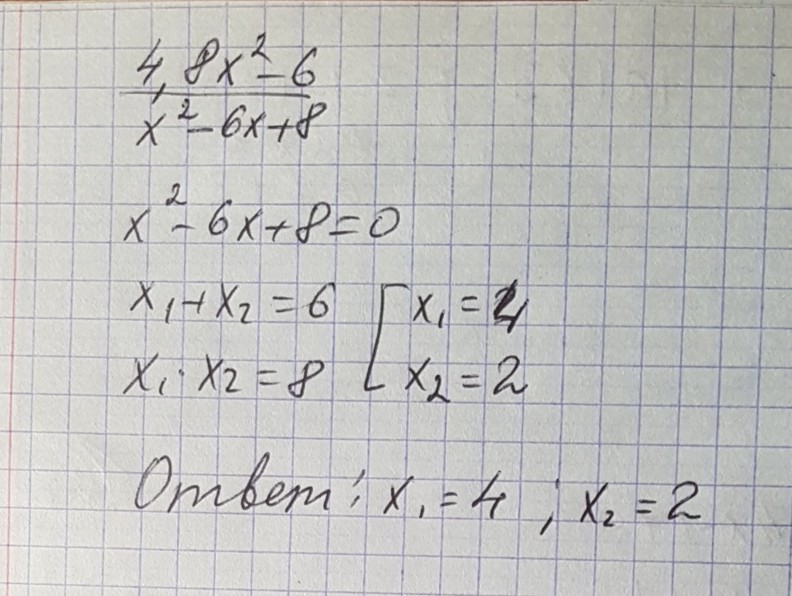 4,8x²-6
x²-6x+8
x²-6x+8=0
x₁+x₂=6 [x₁=4
x₁·x₂=8 x₂=2
Ответ: x₁=4; x₂=2